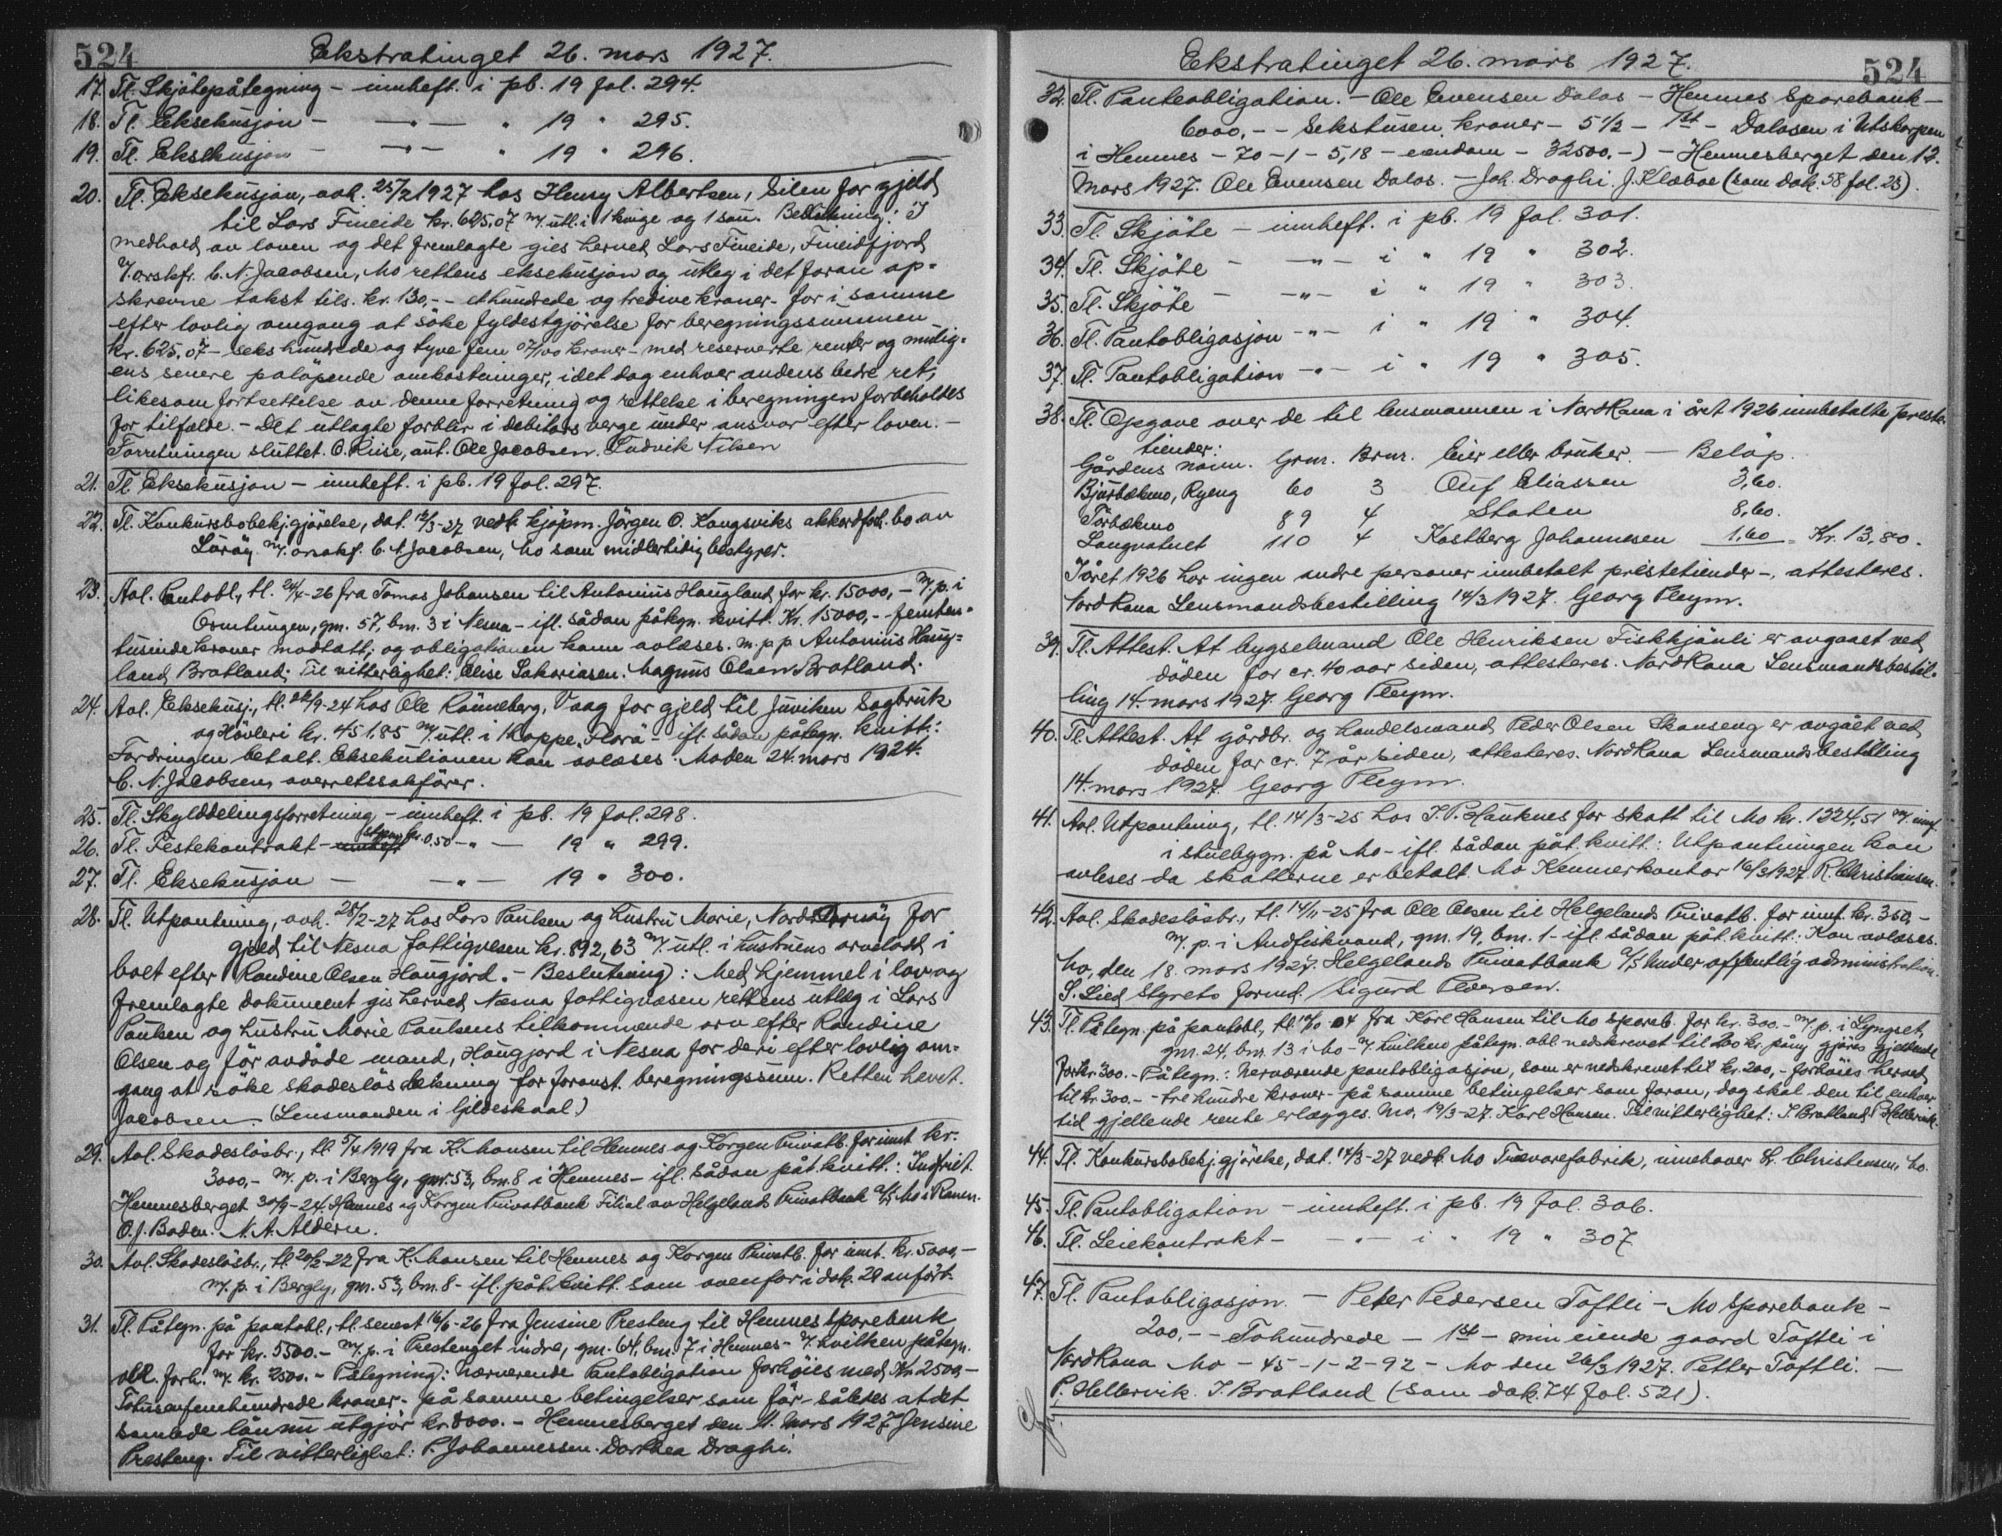 524
Ekstratinget 26. mars 1927.
17. Tl. Skjötepåtegning - innheft. i pb. 19 fol. 294.
18. Tl. Eksekusjon - -"- " 19 " 295.
19. Tl. Eksekusjon - -"- " 19 " 296.
20. Tl. Eksekusjon, avh. 25/2 1927 hos Henry Albertsen, Silen for gjeld
til Lars Fineide kr. 625,07 m/utl. i 1 kuge og 1 sau. Beslutning: I
medhold av loven og det fremlagte gies herved Lars Fineide, Fineidfjord
v/orskfr. C. N. Jacobsen, Mo rettens eksekusjon og utleg i det foran op-
skrevne takst tils. kr. 130,- - ethundrede og tredive kroner - for i samme
efter lovlig omgang at söke fyldestgjörelse for beregningssummen
kr. 625,07 - seks hundrede og tyve fem 07/100 kroner - med reserverte renter og mulig-
ens senere palöpende omkostninger, idet dog enhver andens bedre ret,
likesom fortsettelse av denne forretning og rettelse i beregningen forbeholdes
for tilfælde. - Det utlagte forblir i debitors verge under ansvar efter loven. -
Forretningen sluttet. O. Riise, aut. Ole Jacobsen. Ludvik Nilsen
21. Tl. Eksekusjon - innheft. i pb. 19 fol. 297.
22. Tl. Konkursbobekj.gjörelse, dat. 12/3-27 vedk. kjöpm. Jörgen O. Kongsviks akkordfoh. bo av
Luröy m/. orsakf. C. N. Jacobsen, Mo som midlertidig bestyrer.
23. Avl. Pantobl., tl. 24/4-26 fra Tomas Johansen til Antonius Haugland for kr. 15000,- m/. p. i
gm. 57, bm. 3 i Nesna - ifl. sådan påtegn. kvitt. Kr. 15000,- - femten-
tusinde kroner modtatt, og obligationen kann avlæses. m. p. p. Antonius Haug-
land, Bratland. Til vitterlighet: Elise Sakariasen. Magnus Olsen Bratland.
24. Avl. Eksekusj., tl. 26/9-24 hos Ole Rönneberg, Vaag for gjeld til Juviken Sagbruk
og Hövleri kr. 451,85 m/utl. i 1 hoppe, Flora - ifl. sådan påtegn. kvitt:
Fordringen betalt. Eksekutionen kan avlæses. Moden 24. mars 1927.
C. N. Jacobsen, overretssakförer.
25. Tl. Skylddelingsforretning - innheft. i pb. 19 fol. 298.
26. Tl. Festekontrakt - innheft stpm. kr. 0,50 - " - 19 " 299.
27. Tl. Eksekusjon - - " - 19 " 300.
28. Tl. Utpantning, avh. 25/2-27 hos Lars Paulsen og hustru Marie, Nords. for
gjeld til Nesna fattigvesen kr. 892,63 m/. utl. i hustruens arvelodd i
boet efter Randine Olsen Haugjord. - Beslutning: Med hjemmel i lov og
fremlagte dokument gis herved Nesna fattigvæsen rettens utlæg i Lars
Paulsen og hustru Marie Paulsens tilkommende arv efter Randine
Olsen og för avdöde mand, Haugjord i Nesna for deri efter lovlig om-
gang at söke skadeslös dekning for foranst. beregningssum. Retten hevet.
Jacobsen. (Lensmanden i Gildeskaal)
29. Avl. Skadeslösbr., tl. 5/4 1919 fra K. Monsen til Hemnes og Korgen Privatb. for innt kr.
3000,- m/. p. i Bergly, gm. 53, bm. 8 i Hemnes - ifl. sådan påt. kvitt.: Indfriet.
Hemnesberget 30/9-24. Hemnes og Korgen Privatbank Filial av Helgelands Privatbank a/s Mo i Ranen.
O. J. Boden. N. A. Aldern.
30. Avl. Skadeslösbr., tl. 20/2-22 fra K. Monsen til Hemnes og Korgen Privatb. for innt. kr. 5000,-
m/. p. i Bergly, gm. 53, bm. 8 - ifl. påt. kvitt. som ovenfor i dok. 29 anfört.
31. Tl. Påtegn. på pantobl., tl. senest 16/6-26 fra Jensine Presteng til Hemnes Sparebank
for kr. 5500.- m/. p. i Prestenget indre, gm. 64, bm. 7 i Hemnes - v/. hvilken påtegn.
obl. forh. m/ kr. 2500. - Påtegning: Nærværende Pantobligation forhöies med Kr. 2500,-
Totusenfemhundrede kroner - på samme betingelser som för - således at det
samlede lån nu utgjör kr. 8000. - Hemnesberget den 11. Mars 1927 Jensine
Presteng. Til vitterlighet: P. Johannessen. Dorthea Draghi.
524
Ekstratinget 26. mars 1927.
32. Tl. Panteobligation. - Ole Evensen Dalos - Hemnes Sparebank -
6000,- - Sekstusen kroner - 5 1/2 - 1st - Dalosen i Utskarpen
i Hemnes - 70 - 1 - 5,18 - eiendom - 32500.-) - Hemnesberget den 12.
Mars 1927. Ole Evensen Dalos. - Joh. Draghi. J. Klæboe (som dok. 58 fol. 23).
33. Tl. Skjöte - innheft. i pb. 19 fol. 301.
34. Tl. Skjöte - -"- i " 19 " 302.
35. Tl. Skjöte - -"- i " 19 " 303.
36. Tl. Pantobligasjon -"- i " 19 " 304.
37. Tl. Pantobligation -"- i " 19 " 305.
38. Tl. Opgave over de til lensmannen i Nord Rana i året 1926 innbetalte preste-
tiender:
Gårdens navn. Grnr. Brnr. Eier eller bruker. - Belöp.
Bjurbækmo, Ryeng 60 3 Alf Eliassen 3,60.
Törbækmo 89 4 Staten 8,60.
Langvatnet 110 4 Kastberg Johannesen 1,60 = Kr. 13,80.
I året 1926 har ingen andre personer innbetalt prestetiender -, attesteres.
Nord Rana Lensmandsbestilling 14/3 1927. Georg Pleym.
39. Tl. Attest. At bygselmand Ole Henriksen Fiskkjönli er avgaaet ved
döden for cr. 40 aar siden, attesteres. Nord Rana Lensmandsbestil-
ling 14. mars 1927. Georg Pleym.
40. Tl. Attest. At gårdbr. og handelsmand Peder Olsen Skonseng er avgått ved
döden for cr. 7 år siden, attesteres. Nord Rana Lensmandsbestilling
14. mars 1927. Georg Pleym.
41. Avl. Utpantning, tl. 14/3-25 hos I. P. Hauknes for skatt til Mo kr. 1324,51 m/. innf.
i stuebygn. på Mo - ifl. sådan påt. kvitt.: Utpantningen kan
avleses da skatterne er betalt. Mo Kemnerkontor 16/3 1927. R. Christiansen.
42. Avl. Skadeslösbr., tl. 14/11-25 fra Ole Olsen til Helgelands Privatb. for innt. kr. 350,-
m/. p. i Andfiskvand, gm. 19, bm. 1 - ifl. sådan påt. kvitt.: Kan avlæses.
Mo, den 18. mars 1927. Helgelands Privatbank a/s Under offentlig administration.
S. Lied Styrets formd. Sigurd Pedersen.
43. Tl. Påtegn. på pantobl., tl. 14/10 04 fra Karl Hansen til Mo Spareb. for kr. 300.- m/. p. i Lyngset,
gm. 24, bm. 13 i Mo - v/. hvilken påtegn. obl. nedskrevet til 200 kr. påny gjöres gjeldende
for kr. 300. - Påtegn.: Nærværende pantobligasjon, som er nedskrevet til kr. 200,- forhöies herved
til kr. 300.- - tre hundre kroner - på samme betingelser som foran, dog skal den til enhver
tid gjellende rente erlægges. Mo, 19/3-27. Karl Hansen. Til vitterlighet: I. Bratland P. Hellervik.
44. Tl. Konkursbobekj.gjörelse, dat. 14/3-27 vedk. Mo Trævarefabrik, innehaver H. Christensen, Mo.
45. Tl. Pantobligation - innheft. i pb. 19 fol. 306.
46. Tl. Leiekontrakt - -"- i " 19 " 307
47. Tl. Pantobligasjon. - Peter Pedersen Toftli - Mo Sparebank -
200,- - Tohundrede - 1st - min eiende gaard Toftli i
Nord Rana Mo - 45 - 1 - 2-92 - Mo den 26/3 1927. Petter Toftli. -
P. Hellervik. I. Bratland (som dok. 74 fol. 521).